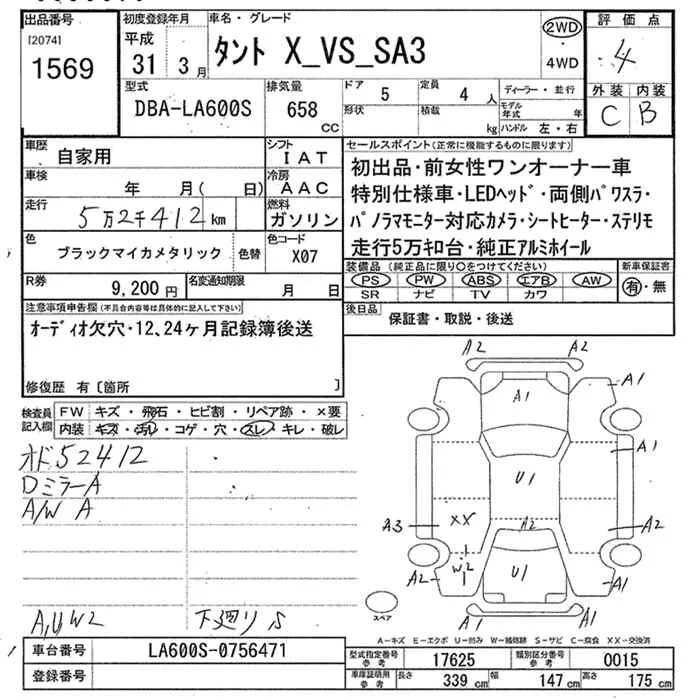 出品番号
[2074]
1569
初度登録年月
平成
31年3月
車名・グレード
タント X_VS_SA3
2WD
・
4WD
評価点
4
外装 内装
C B
型式
DBA-LA600S
排気量
658
CC
ドア
5
定員
4人
形状
積載
kg
ディーラー・並行
モデル
年式 年
ハンドル 左・右
車歴
自家用
シフト
IAT
車検
年 月( 日)
冷房
AAC
走行
5万2千412km
燃料
ガソリン
色
ブラックマイカメタリック
色替
色コード
X07
R券
9,200円
名変通知期限
月 日
セールスポイント(正常に機能するものに限ります)
初出品・前女性ワンオーナー車
特別仕様車・LEDヘッド・両側パワスラ・
パノラマモニター対応カメラ・シートヒーター・ステリモ
走行5万キロ台・純正アルミホイール
装備品(純正品に限り○をつけてください)
PS PW ABS エアB AW
SR ナビ TV カワ
新車保証書
有・無
後日品
保証書・取説・後送
注意事項申告欄(不具合内容等は具体的に記入して下さい)
オーディオ欠穴・12,24ヶ月記録簿後送
修復歴 有〔箇所 〕
検査員
記入欄
FW キズ・飛石・ヒビ割・リペア跡・×要
内装 キズ・汚れ・コゲ・穴・スレ・キレ・破レ
オド52412
DミラーA
A/W A
A,U,W2
下廻りS
A2 A2
A1
A1
A1
U1
A3
XX
A2
A2
W2
A2
U1
A1
A1
スペア
A−キズ E−エクボ U−凹み W−補修跡 S−サビ C−腐食 XX−交換済
車台番号
LA600S-0756471
登録番号
型式指定番号
参考
17625
類別区分番号
参考
0015
車庫証明用
参考
長さ
339cm
幅
147cm
高さ
175cm